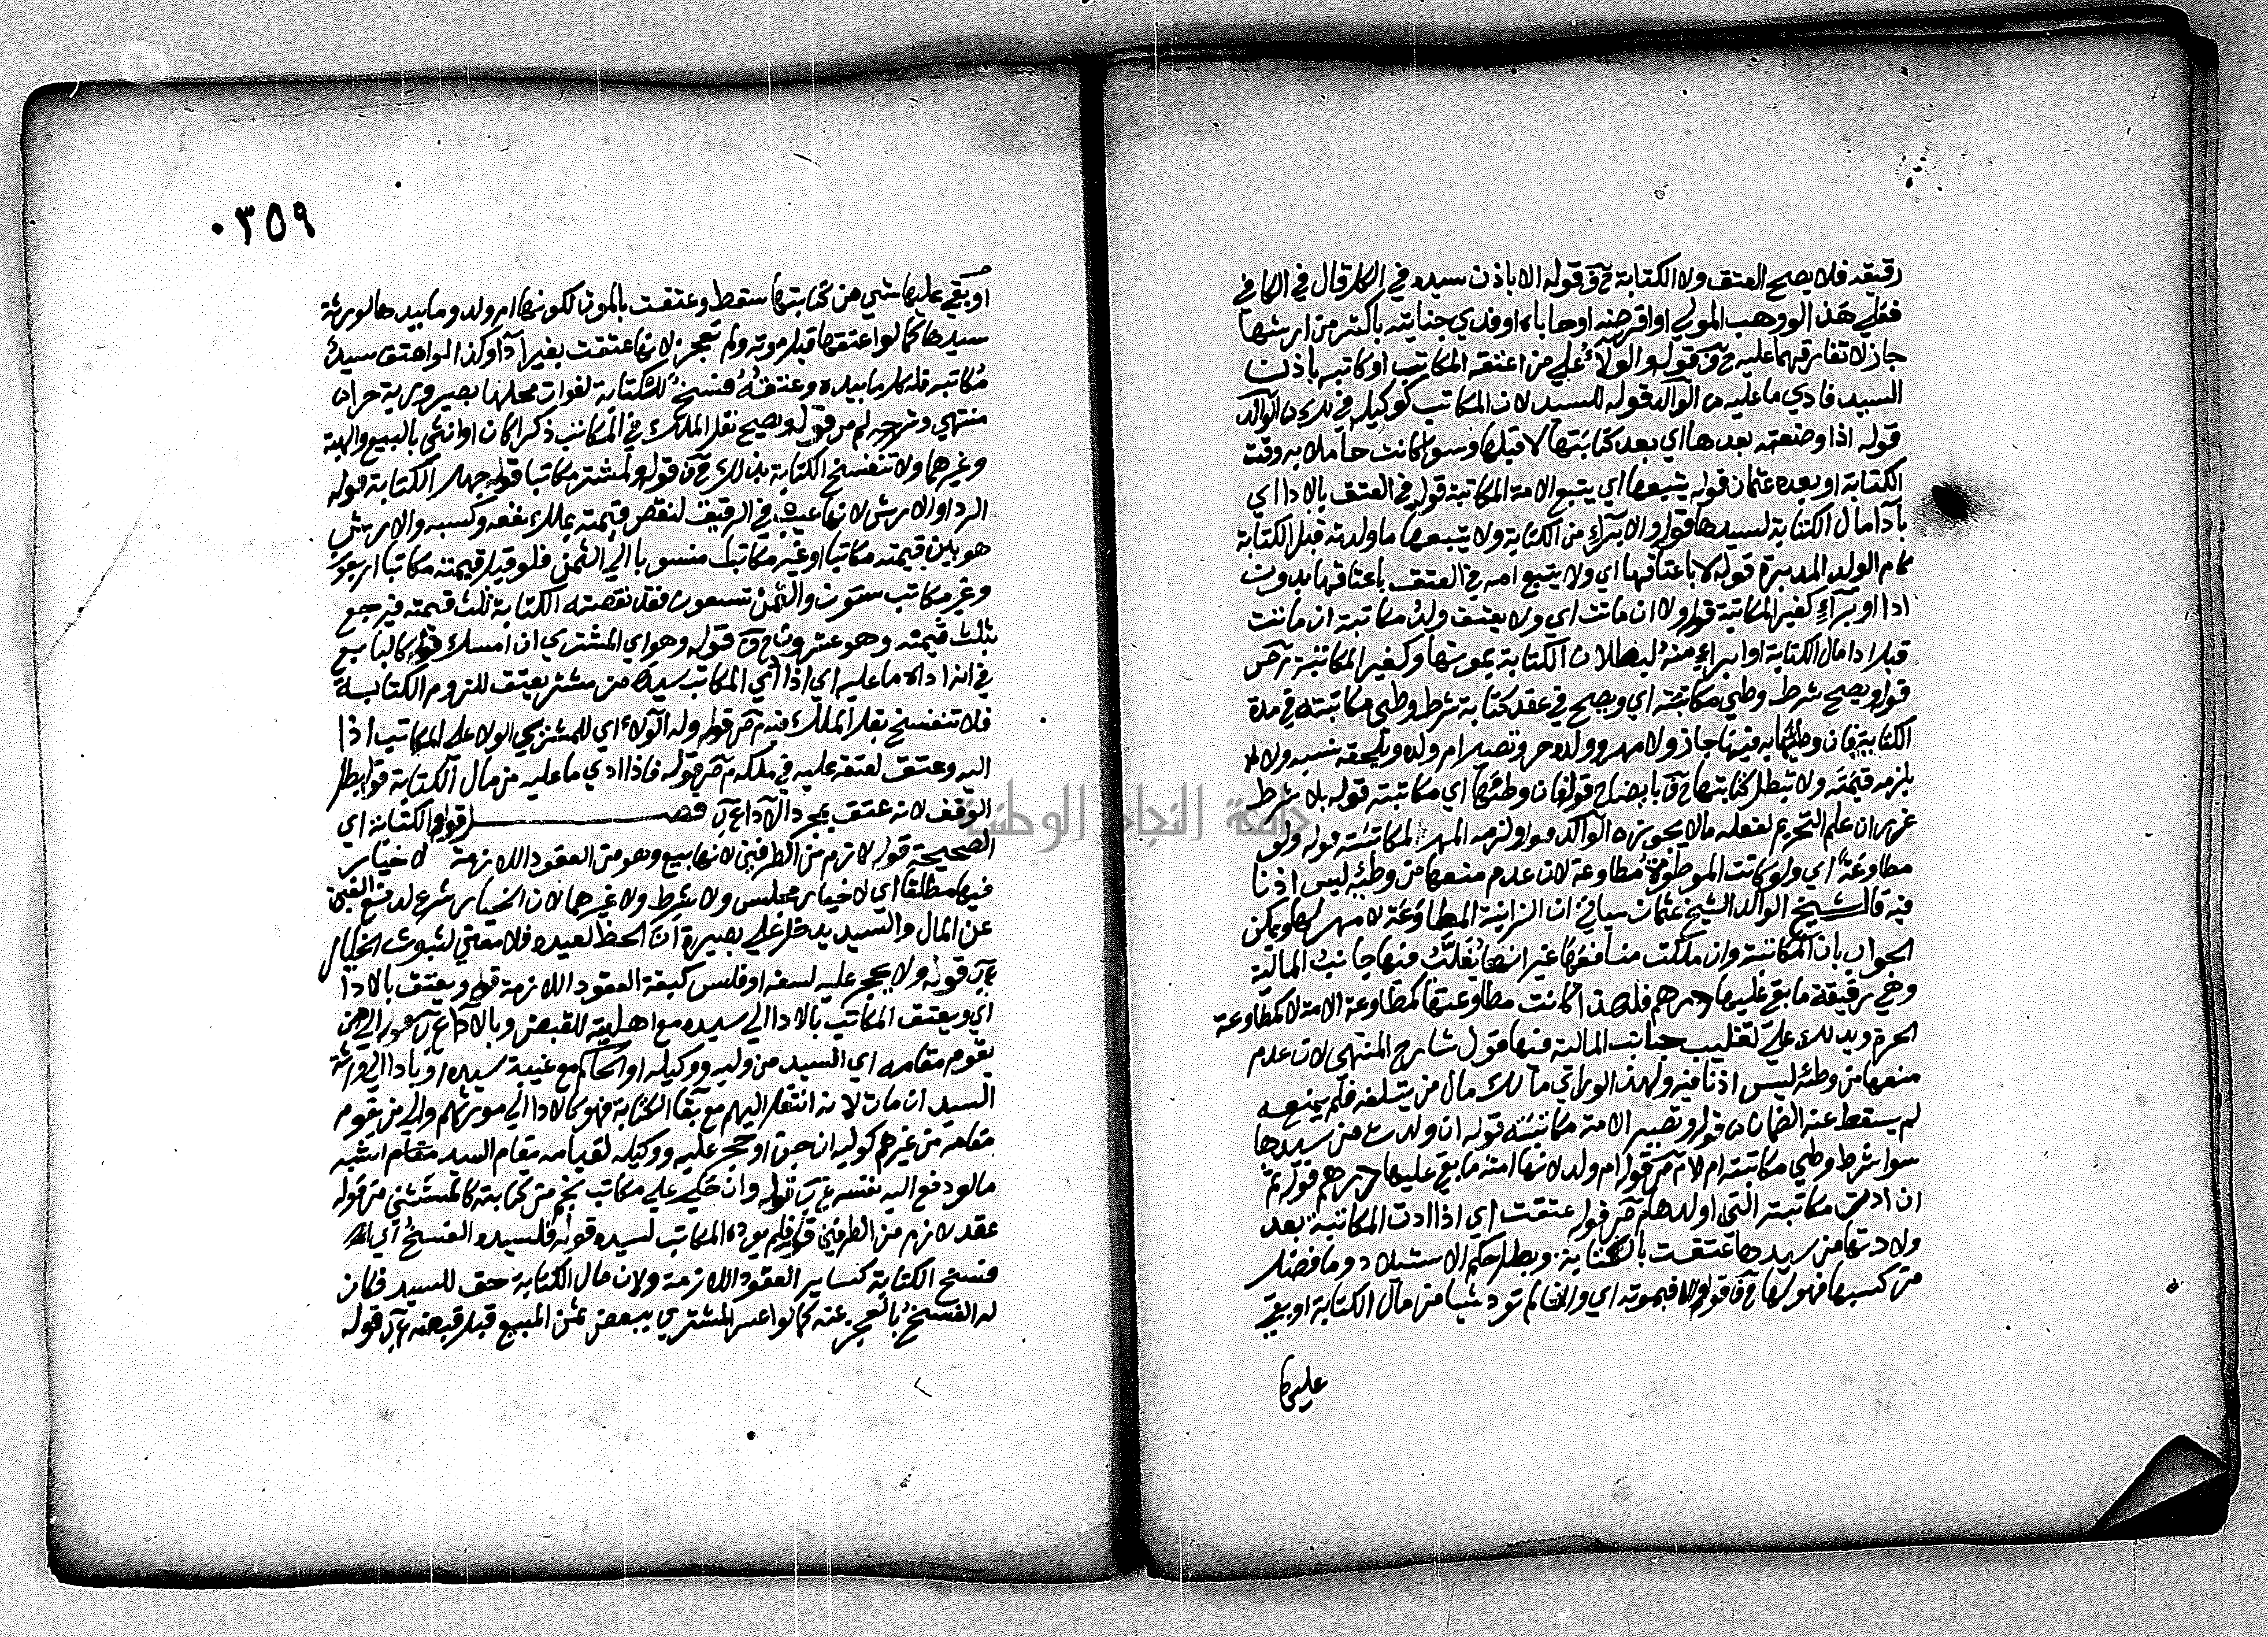 رقيقه فلا يصح العتق ولا الكتابة قوله الا باذن سيده في الكل قال في الكافي
فعلى هذا لو وهب المولي او اقرضه او حاباه او فدي جنايته باكثر من ارشها
جاز لاتفاقهما عليه قوله والولاء علي من اعتقه المكاتب او كاتبه باذن
السيد فادي ما عليه من الوالد قوله للسيد لان المكاتب كوكيله في ذلك من الوالد
قوله اذا وضعته بعدها اي بعد كتابتها لا قبلها وسوا كانت حاملا به وقت
الكتابة او بعده عثمان قوله يتبعها اي يتبع الامة المكاتبة قوله في العتق بالادا اي
بادا مال الكتابة لسيدها قوله والابراء من الكتابة ولا يتبعها ما ولدته قبل الكتابة
كام الولد المدبرة قوله لا باعتاقها اي ولا يتبع امه في العتق باعتاقها بدون
ادا او براء كغير المكاتبة قوله ولا ان ماتت اي ولا يعتق ولد مكاتبة ان ماتت
قبل ادا مال الكتابة او ابراء منه لبطلان الكتابة بموتها وكغير المكاتبة
قوله ويصح شرط وطي مكاتبته اي ويصح في عقد كتابة شرط وطي مكاتبته في مدة
الكتابة فان وطئها فيها جاز ولا مهر وولده حر وتصير ام ولد ويلحقه نسبه ولا
يلزمه قيمته ولا تبطل كتابتها بايضاح قوله فان وطئها اي مكاتبته قوله بلا شرط
عزر ان علم التحريم لفعله ما لا يجوز له الوالد قوله ولزمه المهر المكاتبته قوله ولو
مطاوعة اي ولو كانت الموطوءة مطاوعة لان عدم منعها من وطئه ليس اذنا
فيه قال الشيخ الوالد الشيخ عثمان سياتي ان الزانية المطاوعة لا مهر لها ويمكن
الجواب بان المكاتبة وان ملكت منافعها غير انها يغلب فيها جانب المالية
وهي رقيقة ما بقي عليها درهم فلهذا كانت مطاوعتها كمطاوعة الامة لا كمطاوعة
الحرة ويدلك علي تغليب جانب المالية فيها قول شارح المنتهي لان عدم
منعها من وطئه ليس اذنا فيه ولهذا لو راي مالك مال من يتلفه فلم يمنعه
لم يسقط عنه الضمان قوله وتصير الامة مكاتبته قوله ان ولدت من سيدها
سوا شرط وطي مكاتبته ام لا قوله ام ولد لانها امته ما بقي عليها درهم قوله ثم
ان ادت مكاتبته التي اولدها قوله عتقت اي اذا ادت المكاتبة بعد
ولادتها من سيدها عتقت بالكتابة وبطل حكم الاستيلاد وما فضل
من كسبها فهو لها قوله والا فبموته اي وان لم تود شيا من مال الكتابة او بقي
عليها
٠٣٥٩
او بقي عليها شي من كتابتها سقط وعتقت بالموت لكونها ام ولد وما بيدها لورثة
سيدها كما لو اعتقها قبل موته ولم تعجز لانها عتقت بغير ادا وكذا لو اعتق سيد
مكاتبه فله كل ما بيده وعتقه فسخ للكتابة لفوات محلها بصيرورته حرا
منتهي وشرحه قوله ويصح نقل الملك في المكاتب ذكرا كان او انثي بالبيع والهبة
وغيرهما ولا تنفسخ الكتابة بذلك قوله ولمشتر مكاتبا قوله جهل الكتابة قوله
الرد او الارش لانها عيب في الرقيق لنقص قيمته بملك نفعه وكسبه والارش
هو بين قيمته مكاتبا او غير مكاتب منسوبا الي الثمن فلو قيل قيمته مكاتبا اربعون
وغير مكاتب ستون والثمن تسعون فقد نقصته الكتابة ثلث قيمته فيرجع
بثلث قيمته وهو عشرون قوله وهو اي المشتري ان امسك قوله كالبايع
في انه اذا ادي ما عليه اي اذا ادي المكاتب سيده من مشتر يعتق للزوم الكتابة
فلا تنفسخ بنقل الملك فيه قوله وله الولاء اي للمشتري الولا علي المكاتب اذا
اليه وعتق لعتقه عليه في ملكه قوله فاذا ادي ما عليه من مال الكتابة قوله بطل
الوقف لانه عتق بمجرد الادا فصل قوله والكتابة اي
الصحيحة قوله لازم من الطرفين لانها بيع وهو من العقود اللازمة لا خيار
فيها مطلقا اي لا خيار مجلس ولا شرط ولا غيرهما لان الخيار شرع لدفع الغبن
عن المال والسيد يدخل علي بصيرة ان الحظ لعبده فلا معني لثبوت الخيار
قوله ولا يحجر عليه لسفه او فلس كبقية العقود اللازمة قوله ويعتق بالادا
اي ويعتق المكاتب بالادا الي سيده مع اهليته للقبض وبالادا الي من
يقوم مقامه اي السيد من وليه ووكيله او الحاكم مع غيبة سيده او بادا الي ورثة
السيد ان مات لانه انتقل اليهم مع بقا الكتابة فهو كالادا الي مورثهم والي من يقوم
مقامه من غيرهم كوليه ان جن او حجر عليه ووكيله لقيامه مقام السيد مقام اشبه
ما لو دفع اليه نفسه قوله وان حل علي مكاتب نجم من كتابته كالمستثني من قوله
عقد لازم من الطرفين قوله فلم يوده المكاتب لسيده قوله فلسيده الفسخ اي
فسخ الكتابة كساير العقود اللازمة ولان مال الكتابة حق للسيد فكان
له الفسخ بالعجز عنه كما لو اعسر المشتري ببعض ثمن المبيع قبل قبضه قوله
جامعة النجاح الوطنية